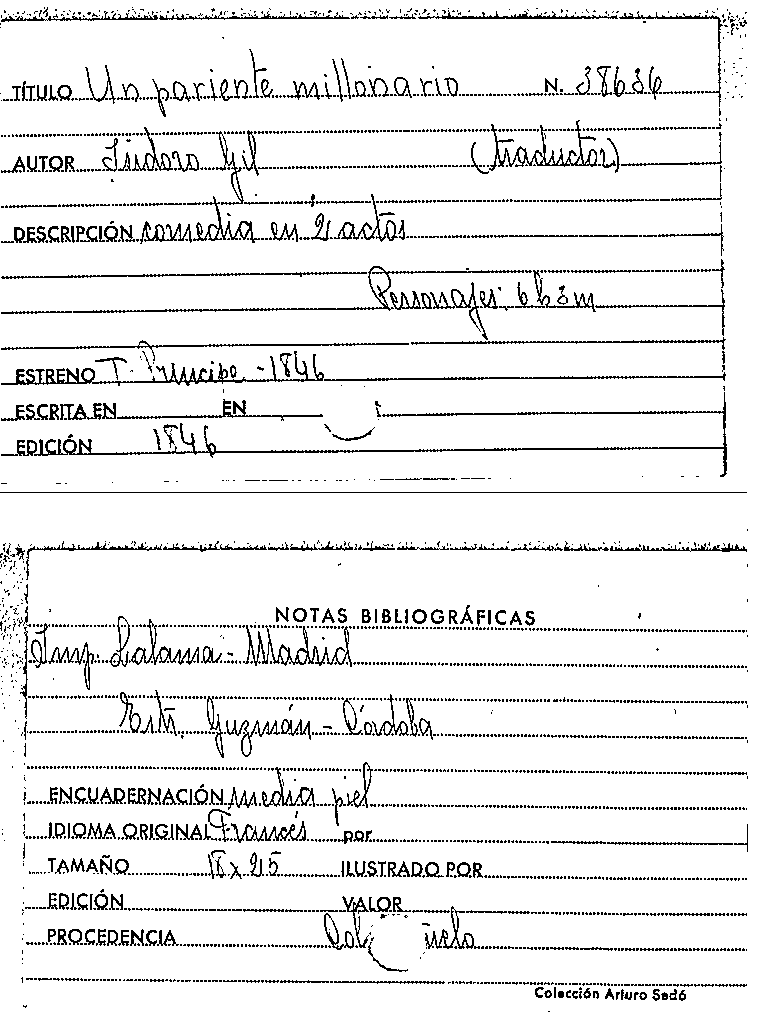 TÍTULO Un pariente millonario N. 38636
AUTOR Isidoro Gil (traductor)
DESCRIPCIÓN comedia en 2 actos
Personajes: 6 h 3 m
ESTRENO T. Príncipe - 1846
ESCRITA EN EN
EDICIÓN 1846
NOTAS BIBLIOGRÁFICAS
Imp. Lalama - Madrid
Estr. Guzmán - Córdoba
ENCUADERNACIÓN media piel
IDIOMA ORIGINAL Francés por
TAMAÑO 18 x 25 ILUSTRADO POR
EDICIÓN VALOR
PROCEDENCIA
Colección Arturo Sedó